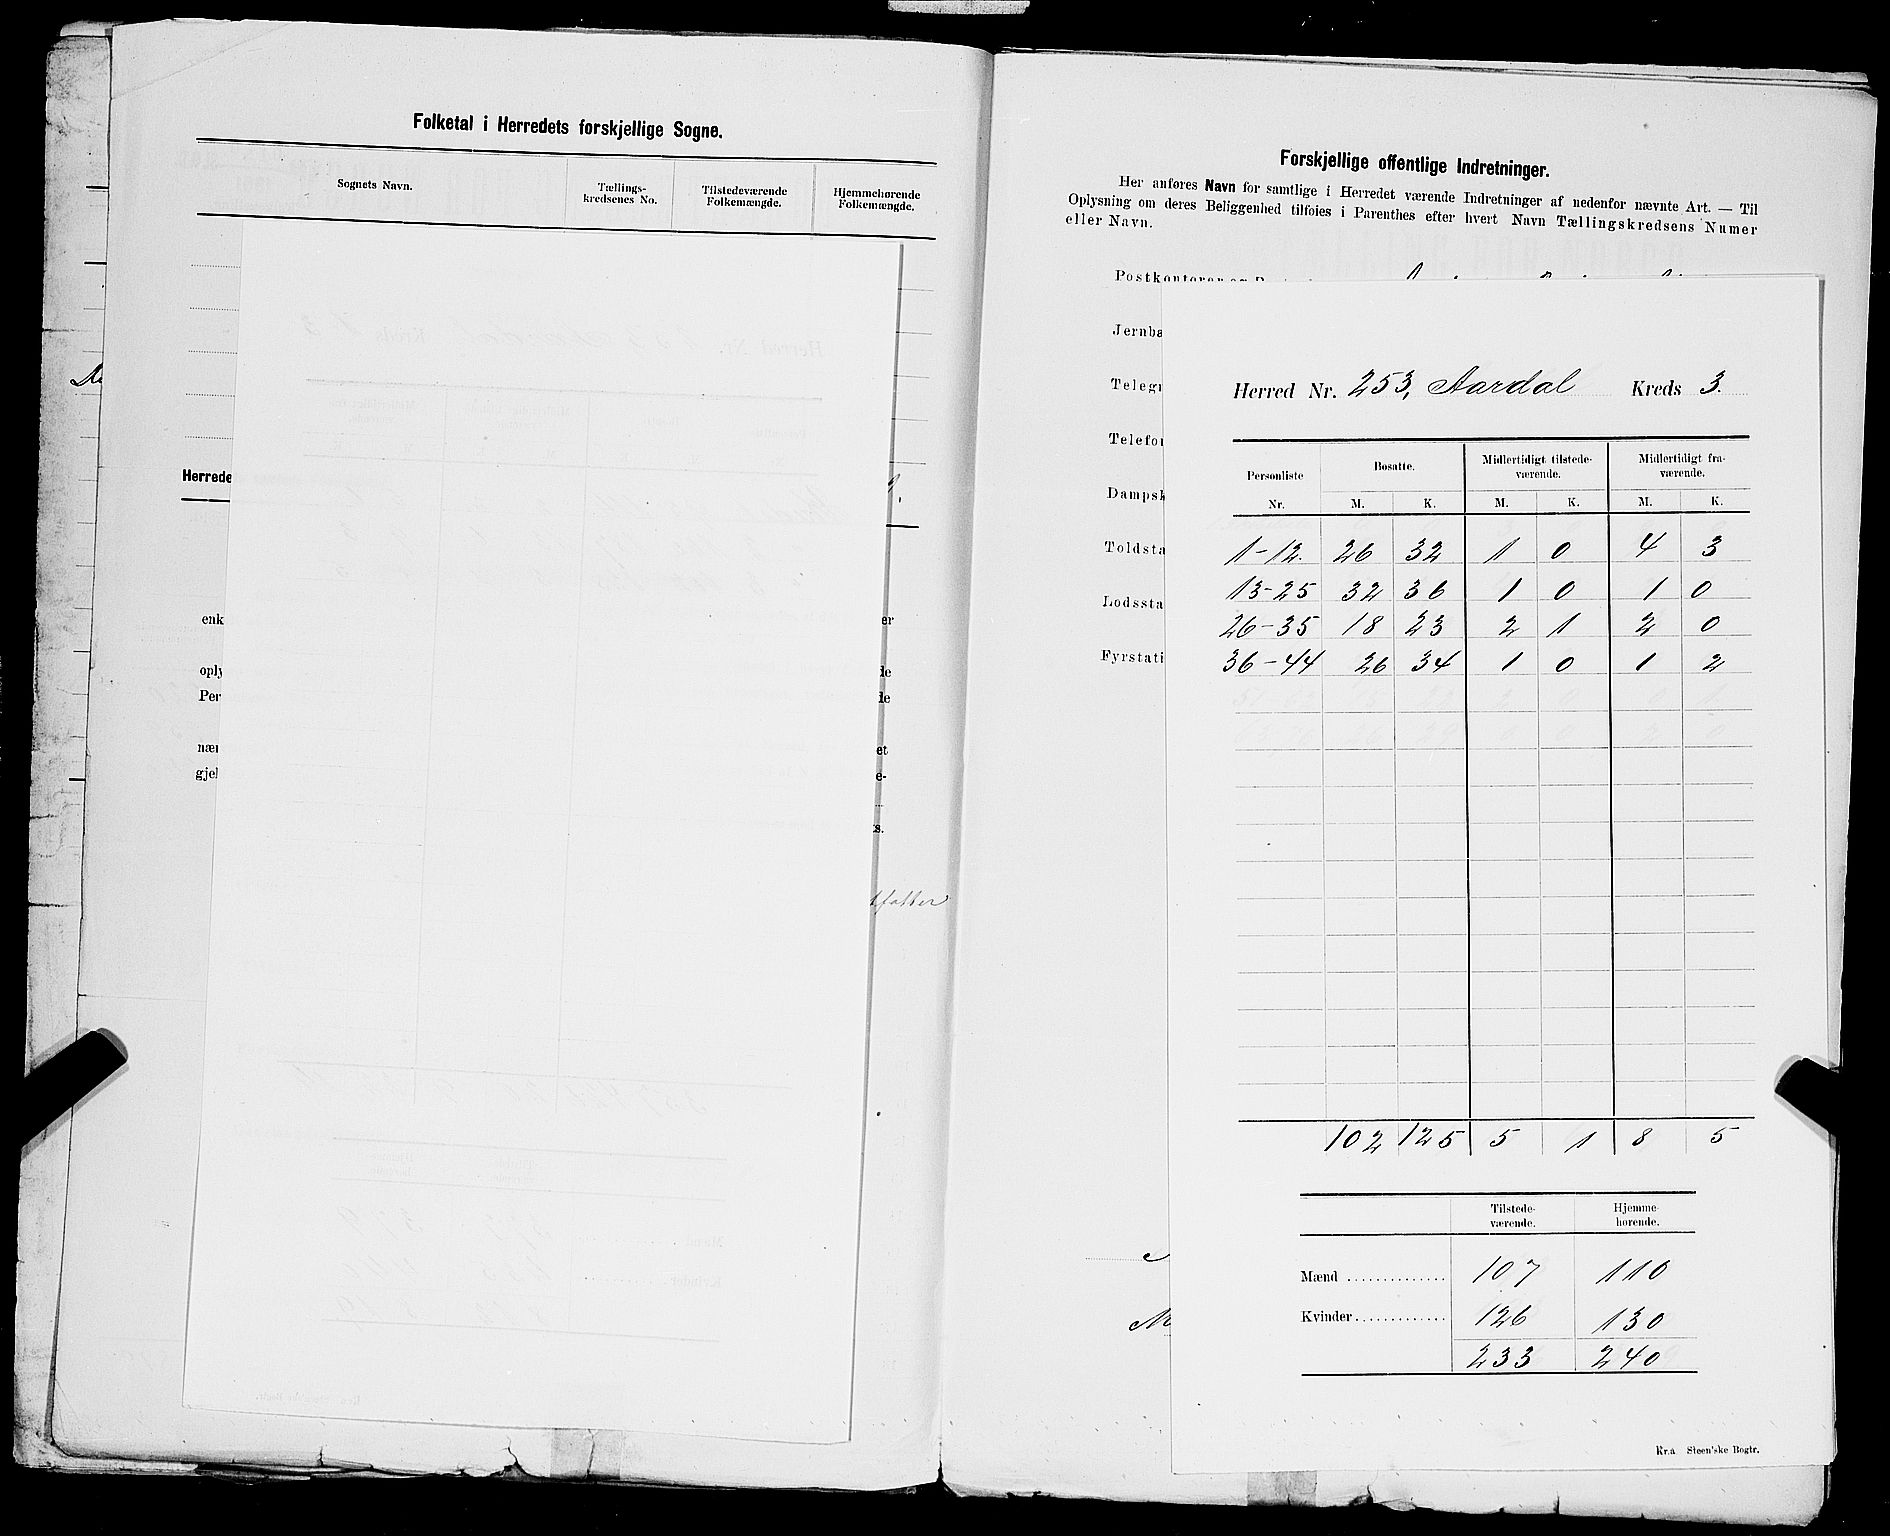 Folketal i Herredets forskjellige Sogne.
Sognets Navn. Tællings-kredsenes No. Tilstedeværende Folkemængde. Hjemmehørende Folkemængde.
Herrede
enk er
oply de
Per de
nær et
gjel e-
s.
Forskjellige offentlige Indretninger.
Her anføres Navn for samtlige i Herredet værende Indretninger af nedenfor nævnte Art. — Til
Oplysning om deres Beliggenhed tilføies i Parenthes efter hvert Navn Tællingskredsens Numer
eller Navn.
Postkontorer og
Jernba
Telegr
Telefor
Dampsk
Toldsta
Lodssta
Fyrstati
Herred Nr. 253, Aardal Kreds 3.
Personliste Bosatte. Midlertidigt tilstede-værende. Midlertidigt fra-værende.
Nr. M. K. M. K. M. K.
1-12. 26 32 1 0 4 3
13-25 32 36 1 0 1 0
26-35 18 23 2 1 2 0
36-44 26 34 1 0 1 2
102 125 5 1 8 5
Tilstede-værende. Hjemme-hørende.
Mænd .............. 107 110
Kvinder............. 126 130
233 240
Kr.a Steen'ske Bogtr.